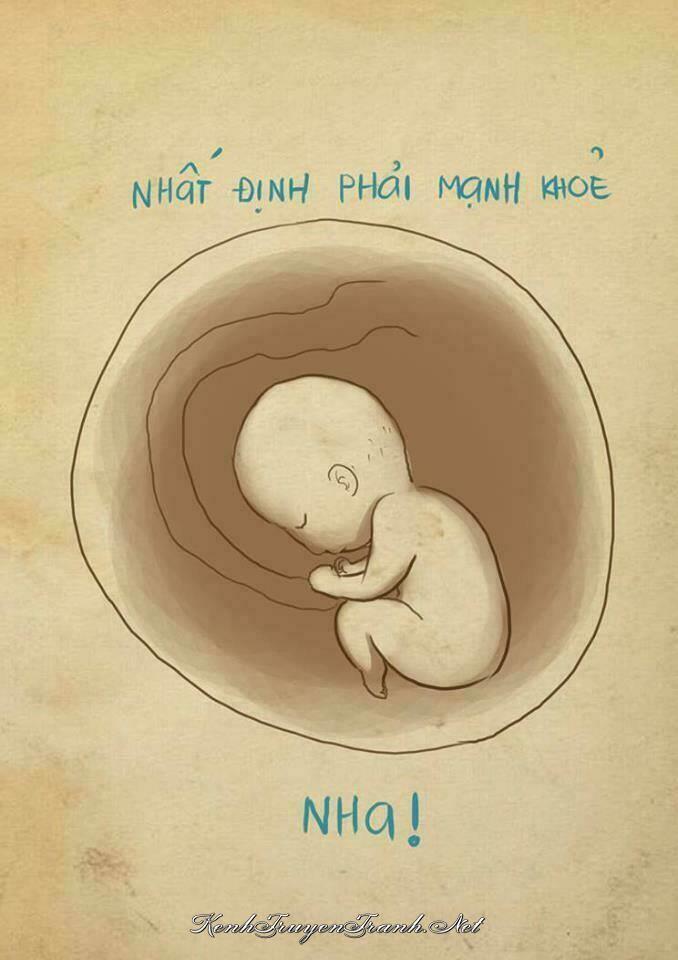 NHẤT ĐỊNH PHẢI MẠNH KHOẺ
NHA!
KenhTruyenTranh.Net